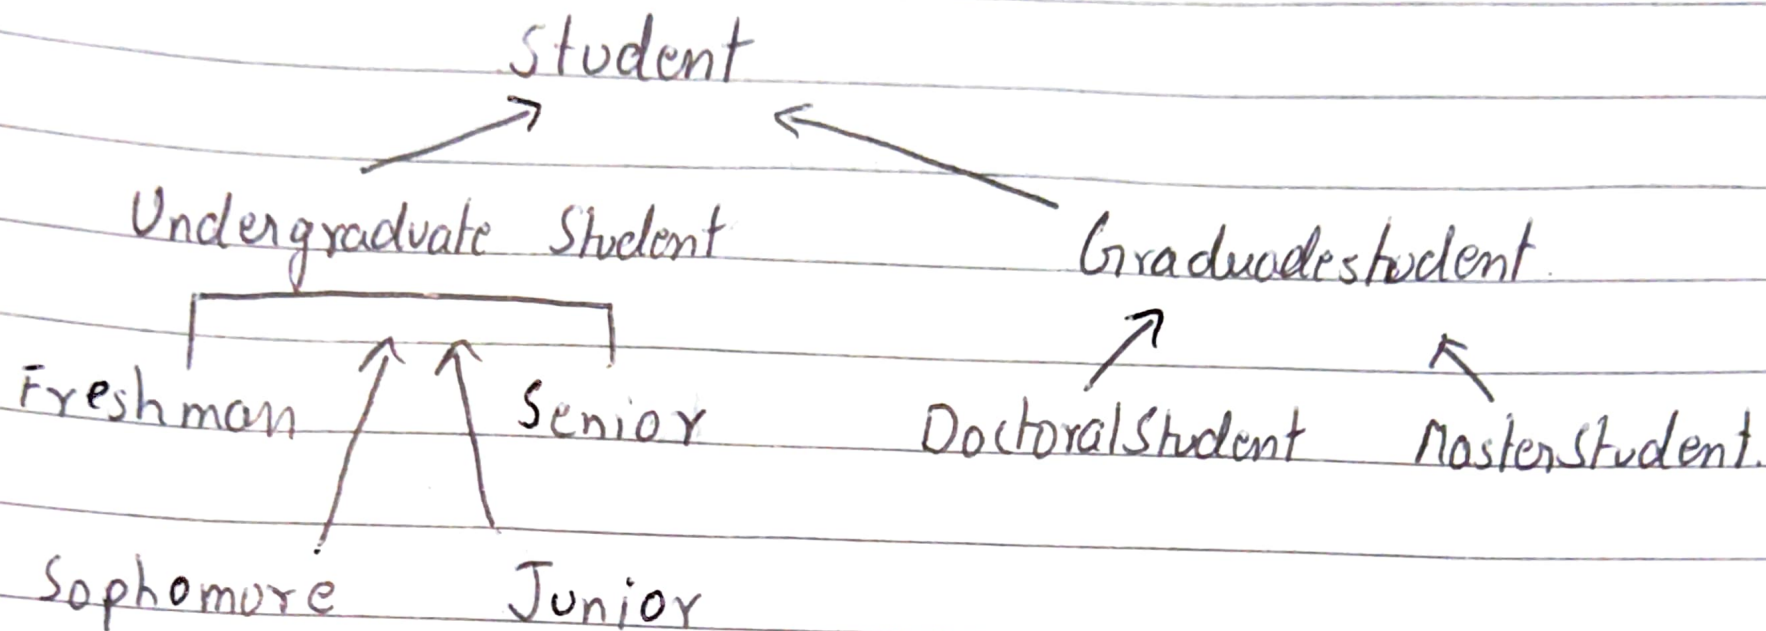 Student
Undergraduate Student
Graduadestudent.
Freshman
Senior
DoctoralStudent
MasterStudent.
Sophomore
Junior